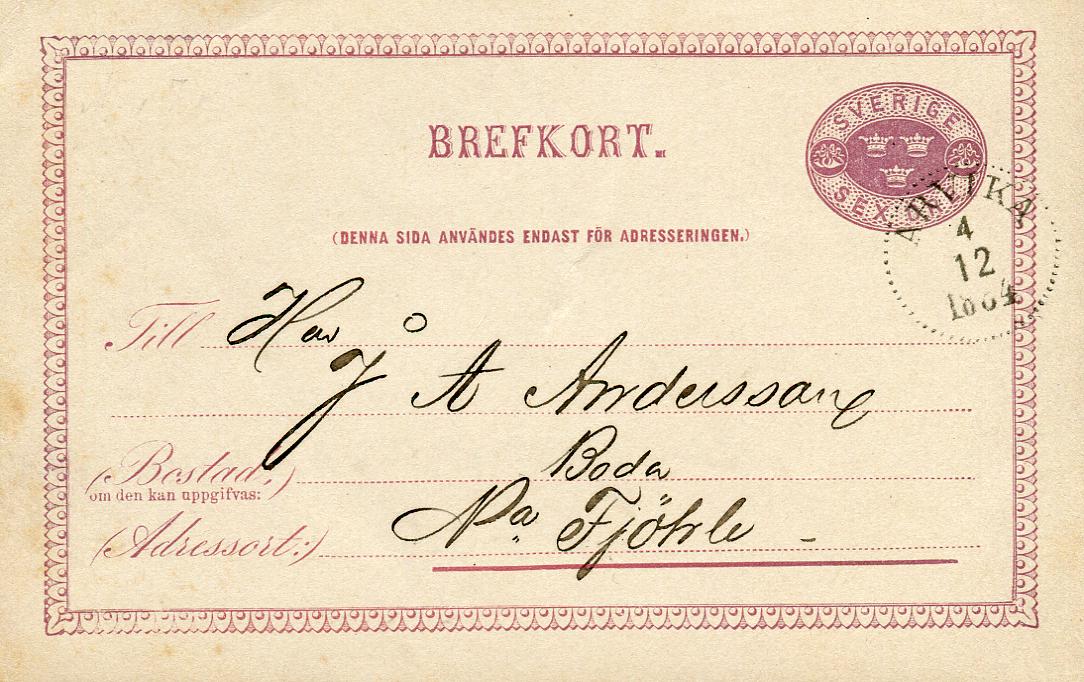 BREFKORT.
SVERIGE
SEX ÖRE
(DENNA SIDA ANVÄNDES ENDAST FÖR ADRESSERINGEN.)
ARVIKA
4
12
1884
Till
J A Andersson
(Bostad,)
om den kan uppgifvas:
Boda
(Adressort:) Na